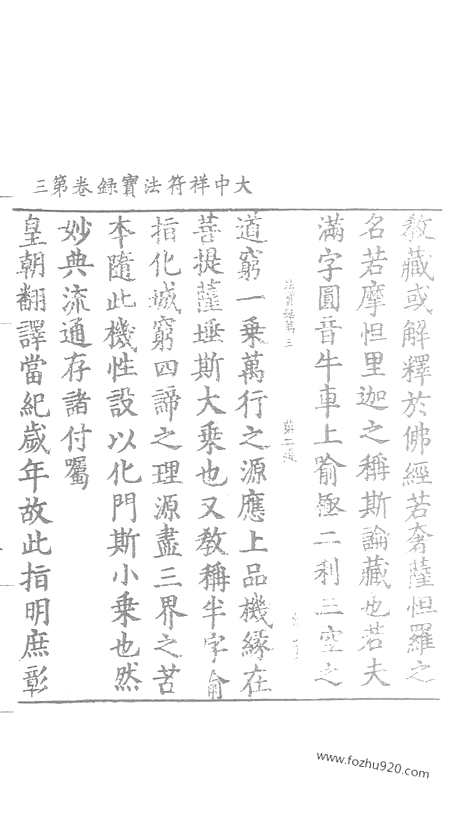 大中祥符法寶録卷第三
教藏或解釋於佛經若奢薩怛羅之
名若摩怛里迦之稱斯論藏也若夫
滿字圓音牛車上喻極二利三空之
道窮一乗萬行之源應上品機緣在
菩提薩埵斯大乗也又教稱半字喻
指化城窮四諦之理源盡三界之苦
本隨此機性設以化門斯小乗也然
妙典流通存諸付囑
皇朝翻譯當紀歲年故此指明庶彰
www.fozhu920.com